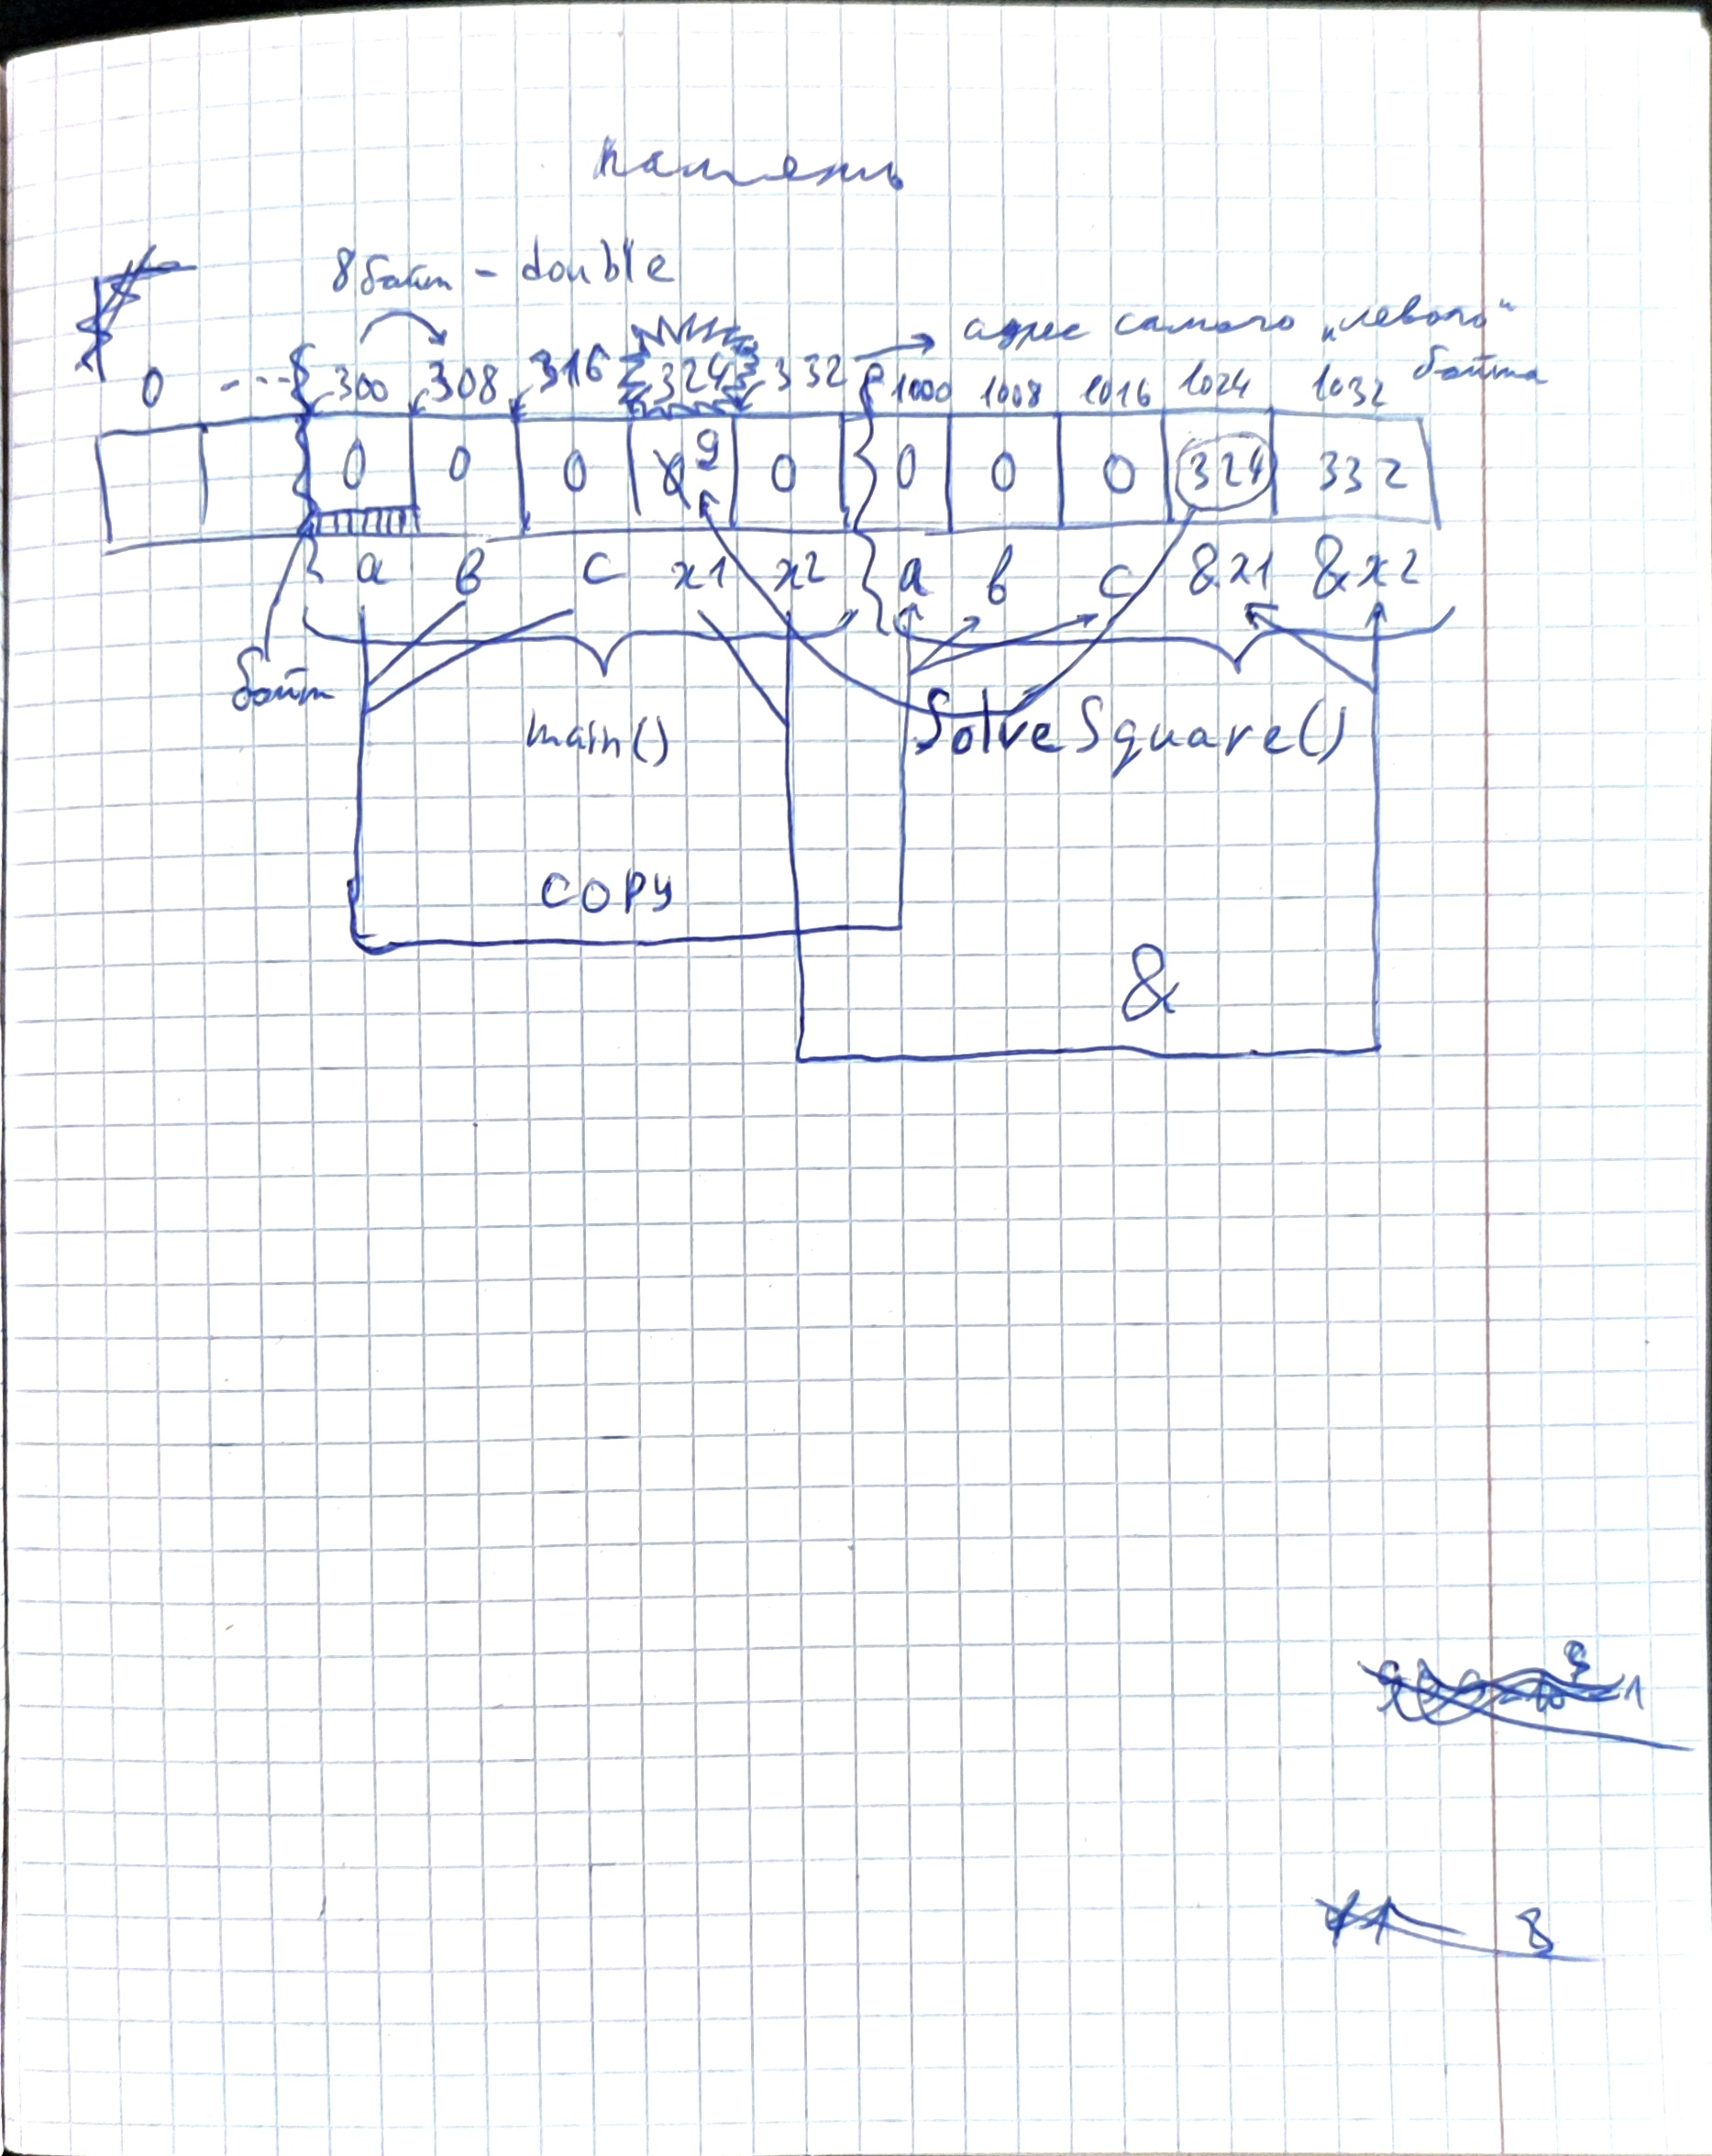 память
8 байт - double
→ адрес самого „левого"
байта
0 --- 300 308 316 324 332 1000 1008 1016 1024 1032
0 0 0 0 9 0 0 0 0 324 332
a b c x1 x2 a b c &x1 &x2
байт
main() SolveSquare()
copy
&
8